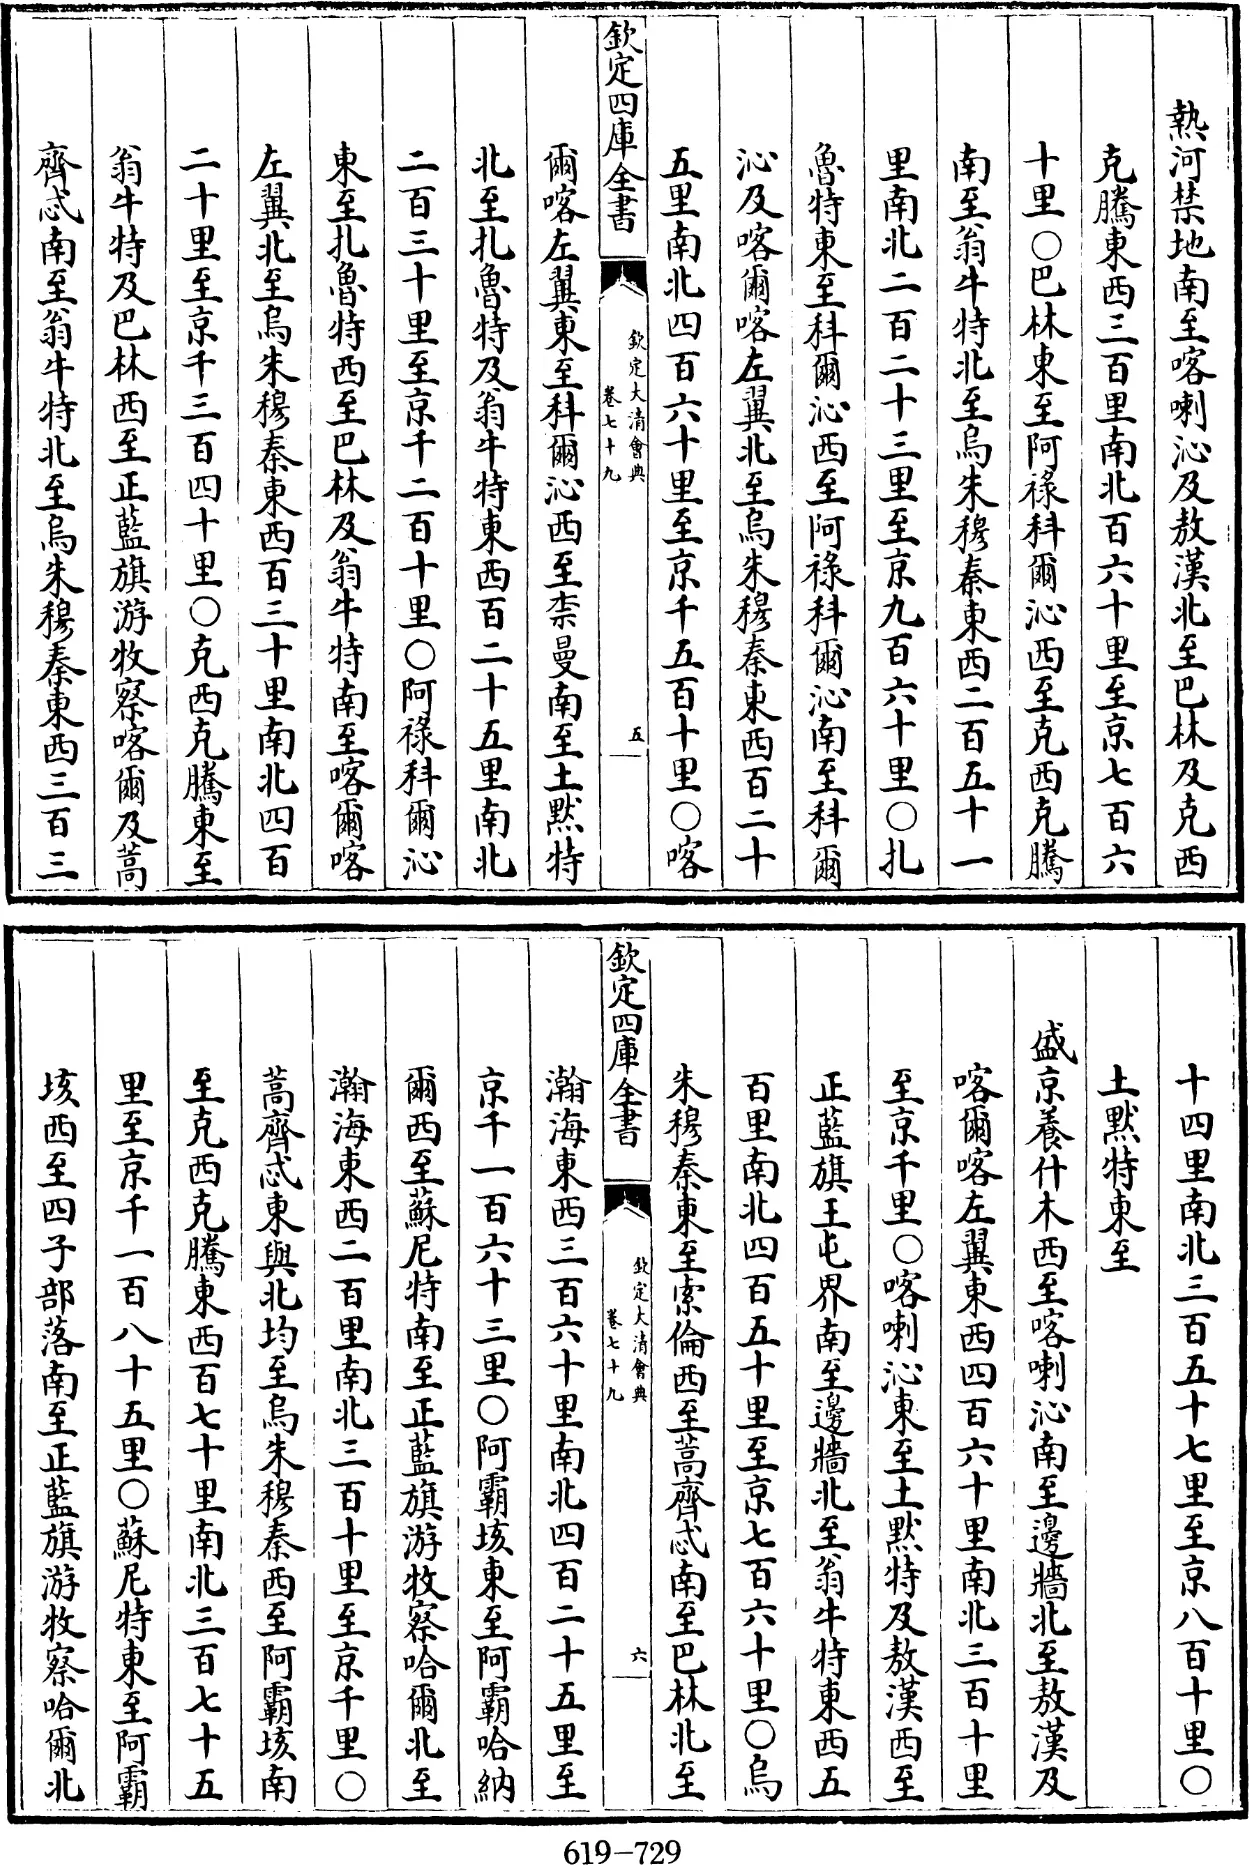 熱河禁地南至喀喇沁及敖漢北至巴林及克西
克騰東西三百里南北百六十里至京七百六
十里〇巴林東至阿祿科爾沁西至克西克騰
南至翁牛特北至烏朱穆秦東西二百五十一
里南北二百二十三里至京九百六十里〇扎
魯特東至科爾沁西至阿祿科爾沁南至科爾
沁及喀爾喀左翼北至烏朱穆秦東西百二十
五里南北四百六十里至京千五百十里〇喀
欽定四庫全書
欽定大清會典
卷七十九
五
爾喀左翼東至科爾沁西至柰曼南至土默特
北至扎魯特及翁牛特東西百二十五里南北
二百三十里至京千二百十里〇阿祿科爾沁
東至扎魯特西至巴林及翁牛特南至喀爾喀
左翼北至烏朱穆秦東西百三十里南北四百
二十里至京千三百四十里〇克西克騰東至
翁牛特及巴林西至正藍旗游牧察喀爾及蒿
齊忒南至翁牛特北至烏朱穆秦東西三百三
十四里南北三百五十七里至京八百十里〇
土默特東至
盛京養什木西至喀喇沁南至邊牆北至敖漢及
喀爾喀左翼東西四百六十里南北三百十里
至京千里〇喀喇沁東至土默特及敖漢西至
正藍旗王屯界南至邊牆北至翁牛特東西五
百里南北四百五十里至京七百六十里〇烏
朱穆秦東至索倫西至蒿齊忒南至巴林北至
欽定四庫全書
欽定大清會典
卷七十九
六
瀚海東西三百六十里南北四百二十五里至
京千一百六十三里〇阿霸垓東至阿霸哈納
爾西至蘇尼特南至正藍旗游牧察哈爾北至
瀚海東西二百里南北三百十里至京千里〇
蒿齊忒東與北均至烏朱穆秦西至阿霸垓南
至克西克騰東西百七十里南北三百七十五
里至京千一百八十五里〇蘇尼特東至阿霸
垓西至四子部落南至正藍旗游牧察哈爾北
619-729